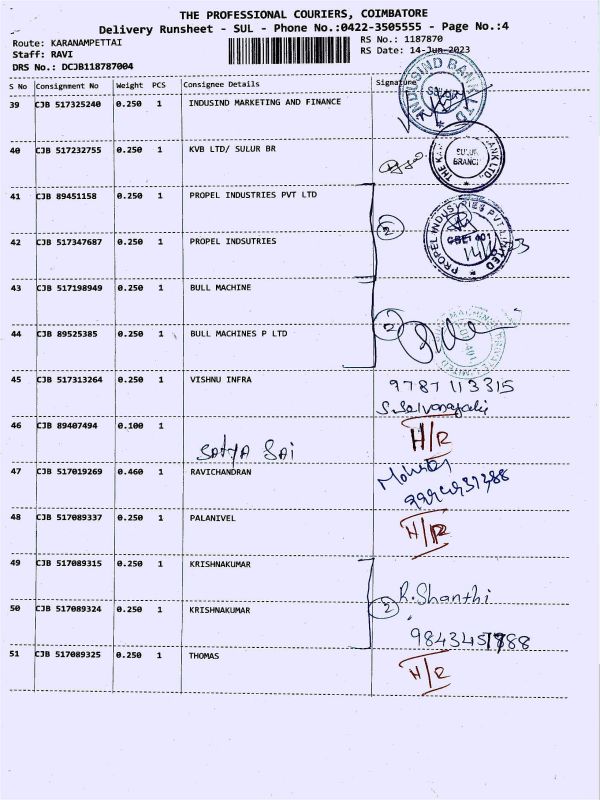 THE PROFESSIONAL COURIERS, COIMBATORE
Delivery Runsheet - SUL - Phone No.:0422-3505555 - Page No.:4
Route: KARANAMPETTAI
RS No.: 1187870
Staff: RAVI
RS Date: 14-Jun-2023
DRS No.: DCJB118787004
S No Consignment No Weight PCS Consignee Details Signature
39 CJB 517325240 0.250 1 INDUSIND MARKETING AND FINANCE
INDUSIND BANK LTD
SULUR
40 CJB 517232755 0.250 1 KVB LTD/ SULUR BR
SULUR
BRANCH
41 CJB 89451158 0.250 1 PROPEL INDUSTRIES PVT LTD
PROPEL INDUSTRIES PVT LIMITED
2
42 CJB 517347687 0.250 1 PROPEL INDSUTRIES
43 CJB 517198949 0.250 1 BULL MACHINE
2
44 CJB 89525385 0.250 1 BULL MACHINES P LTD
45 CJB 517313264 0.250 1 VISHNU INFRA
9787113315
46 CJB 89407494 0.100 1
SATYA SAI
H/R
47 CJB 517019269 0.460 1 RAVICHANDRAN
48 CJB 517089337 0.250 1 PALANIVEL
H/R
49 CJB 517089315 0.250 1 KRISHNAKUMAR
R.Shanthi
2
50 CJB 517089324 0.250 1 KRISHNAKUMAR
51 CJB 517089325 0.250 1 THOMAS
H/R